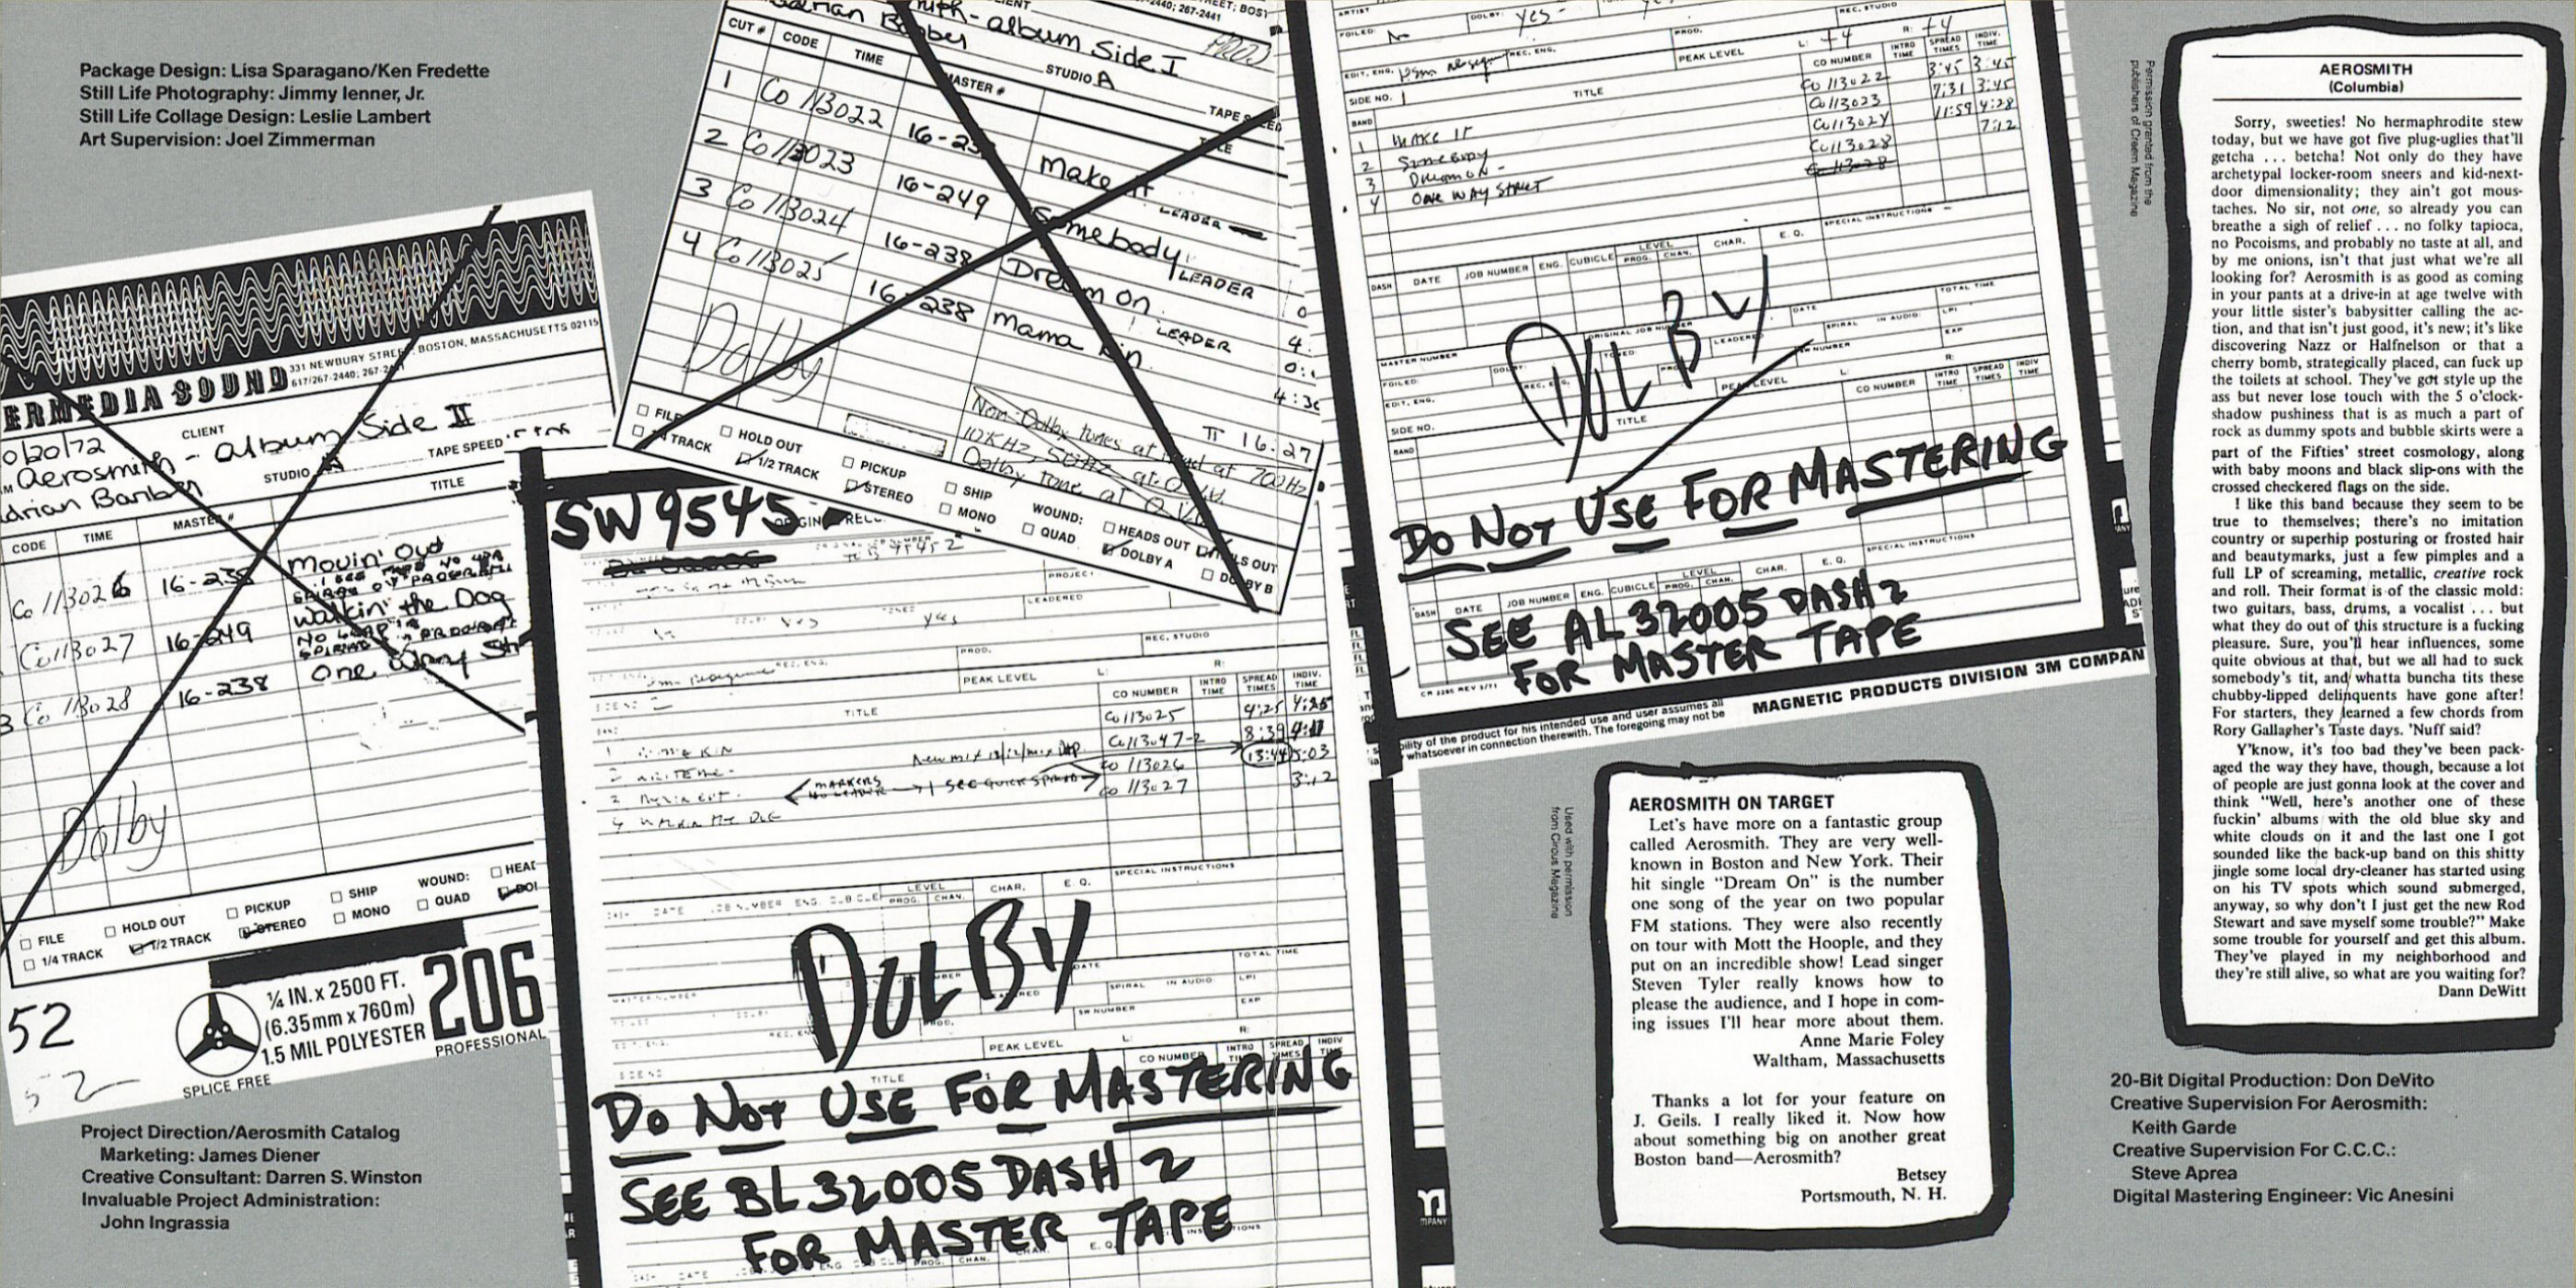 Package Design: Lisa Sparagano/Ken Fredette
Still Life Photography: Jimmy Ienner, Jr.
Still Life Collage Design: Leslie Lambert
Art Supervision: Joel Zimmerman
331 NEWBURY STREET, BOSTON, MASSACHUSETTS 02115
ERMEDIA SOUND
617/267-2440; 267-24
0/20/72
CLIENT
Aerosmith - album Side II
drian Barber
STUDIO A
TAPE SPEED
CODE
TIME
MASTER #
TITLE
Co 113026
16-238
Movin' Out
Co 113027
16-249
Walkin' the Dog
3 Co 113028
16-238
One Way Str
Dolby
FILE
HOLD OUT
PICKUP
SHIP
WOUND:
HEAD
1/4 TRACK
1/2 TRACK
STEREO
MONO
QUAD
DOL
52
52
SPLICE FREE
¼ IN. x 2500 FT.
(6.35mm x 760m)
1.5 MIL POLYESTER
206
PROFESSIONAL
Project Direction/Aerosmith Catalog
Marketing: James Diener
Creative Consultant: Darren S. Winston
Invaluable Project Administration:
John Ingrassia
2440; 267-2441
album Side I
drian Barber
PROD
STUDIO A
CUT #
CODE
TIME
MASTER #
TAPE SPEED
TITLE
1 Co 113022
Make it
LEADER
2 Co 113023
16-249
Somebody
LEADER
3 Co 113024
16-238
Dream On
LEADER
4 Co 113025
16-238
Mama Kin
4:3
TT 16:27
Dolby
Non-Dolby tones at head at 700Hz
10KHz, 50Hz at 0 VU
Dolby tone at 0 VU
FILE
HOLD OUT
PICKUP
SHIP
WOUND:
HEADS OUT
TAILS OUT
TRACK
1/2 TRACK
STEREO
MONO
QUAD
DOLBY A
DOLBY B
SW 9545
yes
PROJECT
LEADERED
REC. STUDIO
PROD.
PEAK LEVEL
L:
R:
TITLE
CO NUMBER
INTRO TIME
SPREAD TIMES
INDIV. TIME
Co 113025 4:25 4:25
Co 113047-2 8:39
Co 113026 13:44 5:03
Co 113027 3:12
MARKERS
NO LEADER
4 WALKIN THE DOG
SPECIAL INSTRUCTIONS
LEVEL
PROG.
CHAN.
CHAR.
E. Q.
DOLBY
DATE
SPIRAL
IN AUDIO:
TOTAL TIME
LPI
EXP
SW NUMBER
PEAK LEVEL
CO NUMBER
TITLE
DO NOT USE FOR MASTERING
SEE BL 32005 DASH 2
FOR MASTER TAPE
ARTIST
DOLBY: yes
REC. STUDIO
FOILED:
PROD.
L: +4
R: +4
EDIT. ENG.
REC. ENG.
PEAK LEVEL
CO NUMBER
INTRO TIME
SPREAD TIMES
INDIV. TIME
SIDE NO. 1
TITLE
BAND
1 MAKE IT Co 113022 3:45 3:45
2 SOMEBODY Co 113023 7:31 3:45
3 DREAM ON - Co 113024 11:59 4:28
4 ONE WAY STREET Co 113028 7:12
SPECIAL INSTRUCTIONS
DASH
DATE
JOB NUMBER
ENG.
CUBICLE
LEVEL
PROG.
CHAN.
CHAR.
E. Q.
DOLBY
MASTER NUMBER
ORIGINAL JOB NUMBER
LEADERED
DATE
SPIRAL
IN AUDIO:
TOTAL TIME
LPI
EXP
FOILED:
EDIT. ENG.
SIDE NO.
PEAK LEVEL
CO NUMBER
INTRO TIME
SPREAD TIMES
INDIV TIME
TITLE
BAND
DO NOT USE FOR MASTERING
DASH
DATE
JOB NUMBER
ENG.
CUBICLE
LEVEL
PROG.
CHAN.
CHAR.
E. Q.
SPECIAL INSTRUCTIONS
SEE AL 32005 DASH 2
FOR MASTER TAPE
MAGNETIC PRODUCTS DIVISION 3M COMPAN
bility of the product for his intended use and user assumes all
whatsoever in connection therewith. The foregoing may not be
Used with permission
from Circus Magazine
AEROSMITH ON TARGET
Let's have more on a fantastic group
called Aerosmith. They are very well-
known in Boston and New York. Their
hit single "Dream On" is the number
one song of the year on two popular
FM stations. They were also recently
on tour with Mott the Hoople, and they
put on an incredible show! Lead singer
Steven Tyler really knows how to
please the audience, and I hope in com-
ing issues I'll hear more about them.
Anne Marie Foley
Waltham, Massachusetts
Thanks a lot for your feature on
J. Geils. I really liked it. Now how
about something big on another great
Boston band—Aerosmith?
Betsey
Portsmouth, N. H.
Permission granted from the
publishers of Creem Magazine
AEROSMITH
(Columbia)
Sorry, sweeties! No hermaphrodite stew
today, but we have got five plug-uglies that'll
getcha ... betcha! Not only do they have
archetypal locker-room sneers and kid-next-
door dimensionality; they ain't got mous-
taches. No sir, not one, so already you can
breathe a sigh of relief ... no folky tapioca,
no Pocoisms, and probably no taste at all, and
by me onions, isn't that just what we're all
looking for? Aerosmith is as good as coming
in your pants at a drive-in at age twelve with
your little sister's babysitter calling the ac-
tion, and that isn't just good, it's new; it's like
discovering Nazz or Halfnelson or that a
cherry bomb, strategically placed, can fuck up
the toilets at school. They've got style up the
ass but never lose touch with the 5 o'clock-
shadow pushiness that is as much a part of
rock as dummy spots and bubble skirts were a
part of the Fifties' street cosmology, along
with baby moons and black slip-ons with the
crossed checkered flags on the side.
I like this band because they seem to be
true to themselves; there's no imitation
country or superhip posturing or frosted hair
and beautymarks, just a few pimples and a
full LP of screaming, metallic, creative rock
and roll. Their format is of the classic mold:
two guitars, bass, drums, a vocalist ... but
what they do out of this structure is a fucking
pleasure. Sure, you'll hear influences, some
quite obvious at that, but we all had to suck
somebody's tit, and whatta buncha tits these
chubby-lipped delinquents have gone after!
For starters, they learned a few chords from
Rory Gallagher's Taste days. 'Nuff said?
Y'know, it's too bad they've been pack-
aged the way they have, though, because a lot
of people are just gonna look at the cover and
think "Well, here's another one of these
fuckin' albums with the old blue sky and
white clouds on it and the last one I got
sounded like the back-up band on this shitty
jingle some local dry-cleaner has started using
on his TV spots which sound submerged,
anyway, so why don't I just get the new Rod
Stewart and save myself some trouble?" Make
some trouble for yourself and get this album.
They've played in my neighborhood and
they're still alive, so what are you waiting for?
Dann DeWitt
20-Bit Digital Production: Don DeVito
Creative Supervision For Aerosmith:
Keith Garde
Creative Supervision For C.C.C.:
Steve Aprea
Digital Mastering Engineer: Vic Anesini